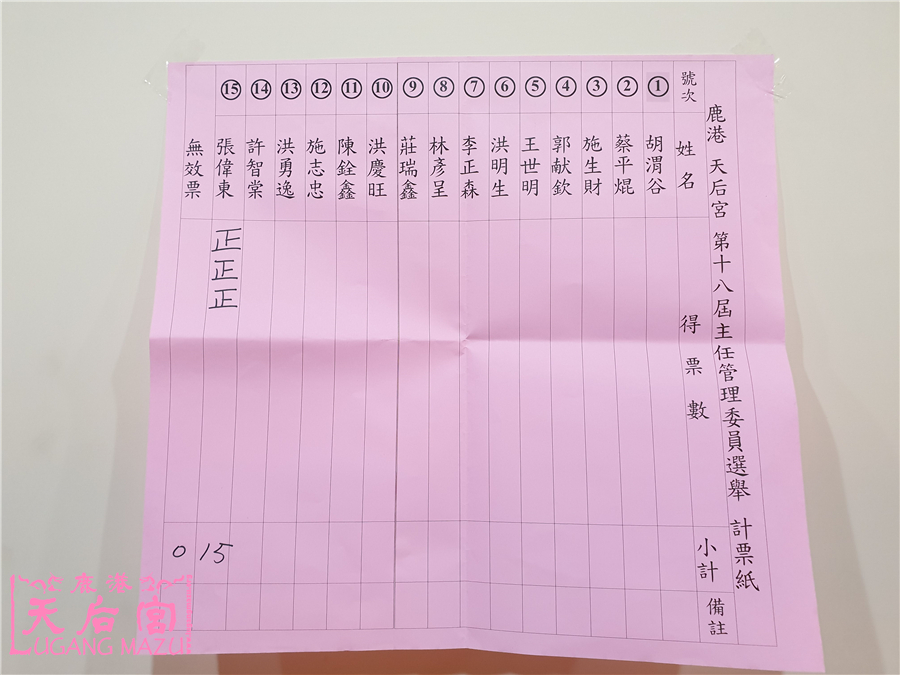 鹿港 天后宮 第十八屆主任管理委員選舉 計票紙
號次 姓名 得票數 小計 備註
1 胡渭谷
2 蔡平焜
3 施生財
4 郭献欽
5 王世明
6 洪明生
7 李正森
8 林彥呈
9 莊瑞鑫
10 洪慶旺
11 陳銓鑫
12 施志忠
13 洪勇逸
14 許智棠
15 張偉東 正正正 15
無效票 0
鹿港
天后宮
LUGANG MAZU